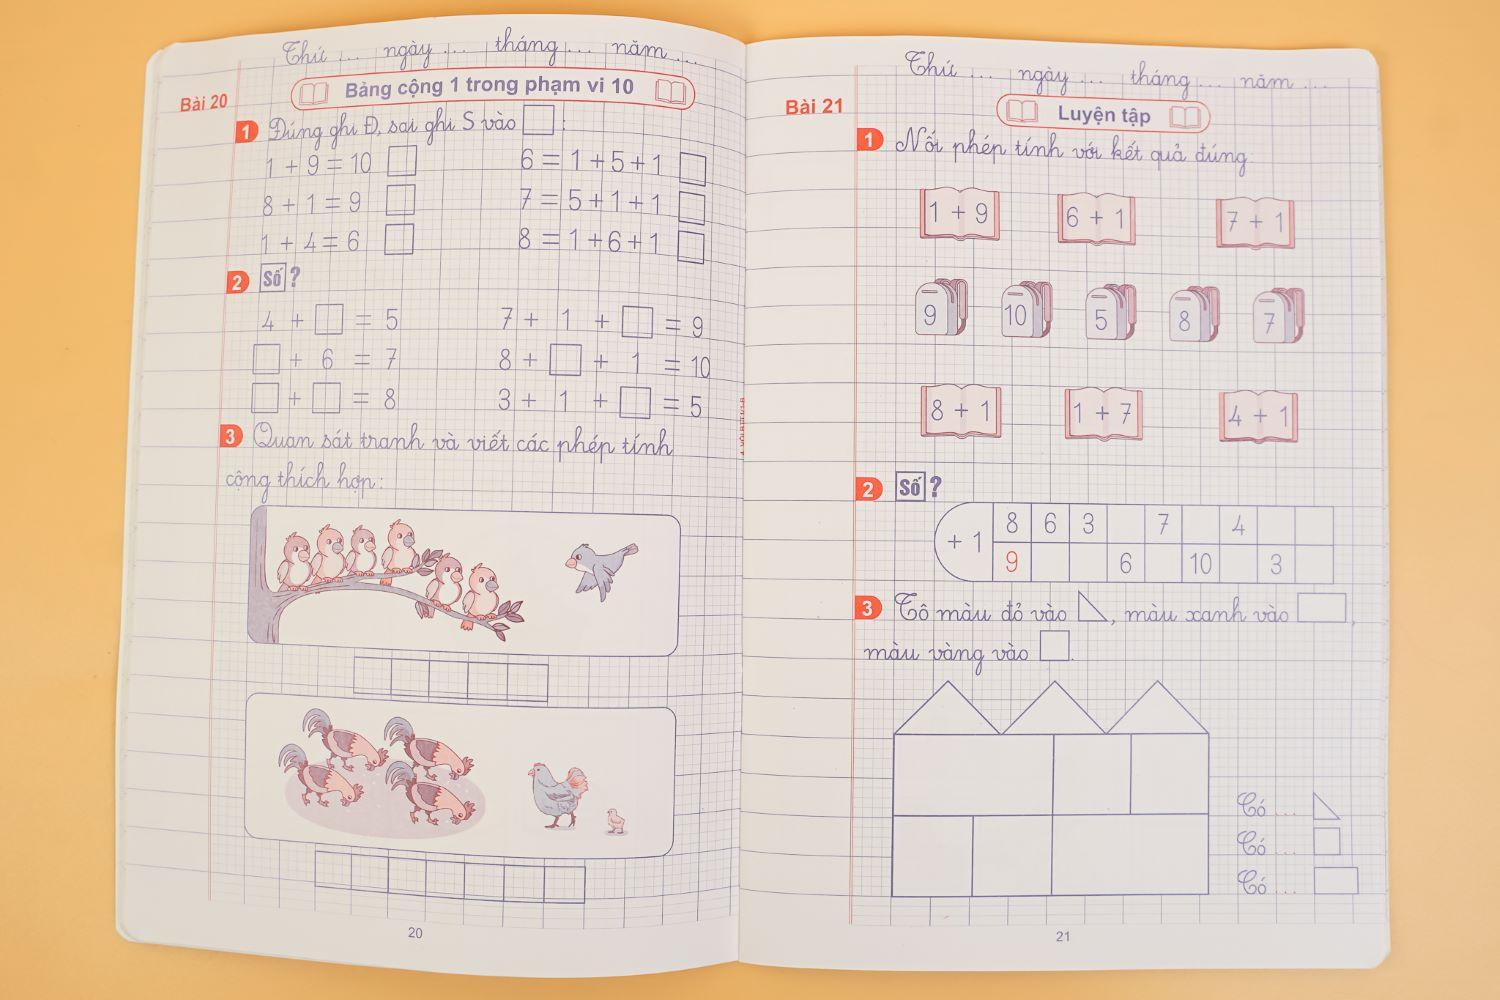 Thứ ... ngày ... tháng ... năm ...
Bài 20
Bảng cộng 1 trong phạm vi 10
1 Đúng ghi Đ, sai ghi S vào □ :
1 + 9 = 10 □ 6 = 1 + 5 + 1 □
8 + 1 = 9 □ 7 = 5 + 1 + 1 □
1 + 4 = 6 □ 8 = 1 + 6 + 1 □
2 Số ?
4 + □ = 5 7 + 1 + □ = 9
□ + 6 = 7 8 + □ + 1 = 10
□ + □ = 8 3 + 1 + □ = 5
3 Quan sát tranh và viết các phép tính
cộng thích hợp:
20
Thứ ... ngày ... tháng ... năm ...
Bài 21
Luyện tập
1 Nối phép tính với kết quả đúng.
1 + 9 6 + 1 7 + 1
9 10 5 8 7
8 + 1 1 + 7 4 + 1
2 Số ?
+ 1
8 6 3 7 4
9 6 10 3
3 Tô màu đỏ vào , màu xanh vào ,
màu vàng vào .
Có ...
Có ...
Có ...
21